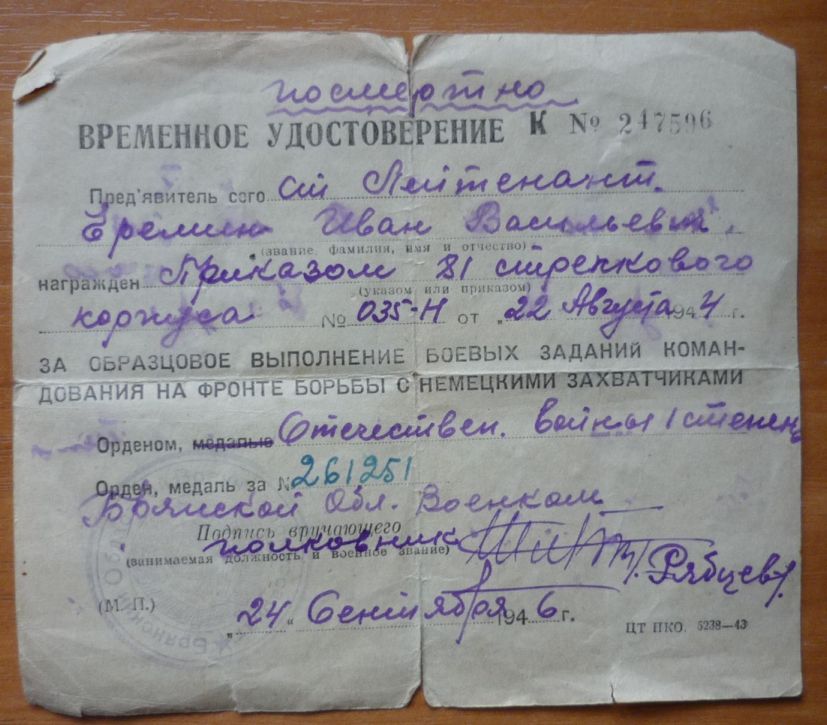 посмертно
ВРЕМЕННОЕ УДОСТОВЕРЕНИЕ К № 247596
Пред'явитель сего ст Лейтенант.
Еремин Иван Васильевич.
(звание, фамилия, имя и отчество)
награжден Приказом 81 стрелкового
(указом или приказом)
корпуса № 035-Н от „22 Августа 1944 г.
ЗА ОБРАЗЦОВОЕ ВЫПОЛНЕНИЕ БОЕВЫХ ЗАДАНИЙ КОМАН-
ДОВАНИЯ НА ФРОНТЕ БОРЬБЫ С НЕМЕЦКИМИ ЗАХВАТЧИКАМИ
Орденом, медалью Отечествен. войны I степени
Орден, медаль за № 261251
Брянской Обл. Военком
Подпись вручающего
полковник Рябцев
(занимаемая должность и военное звание)
(М. П.) „24" Сентября 1946 г.
ЦТ ПКО. 5238—43